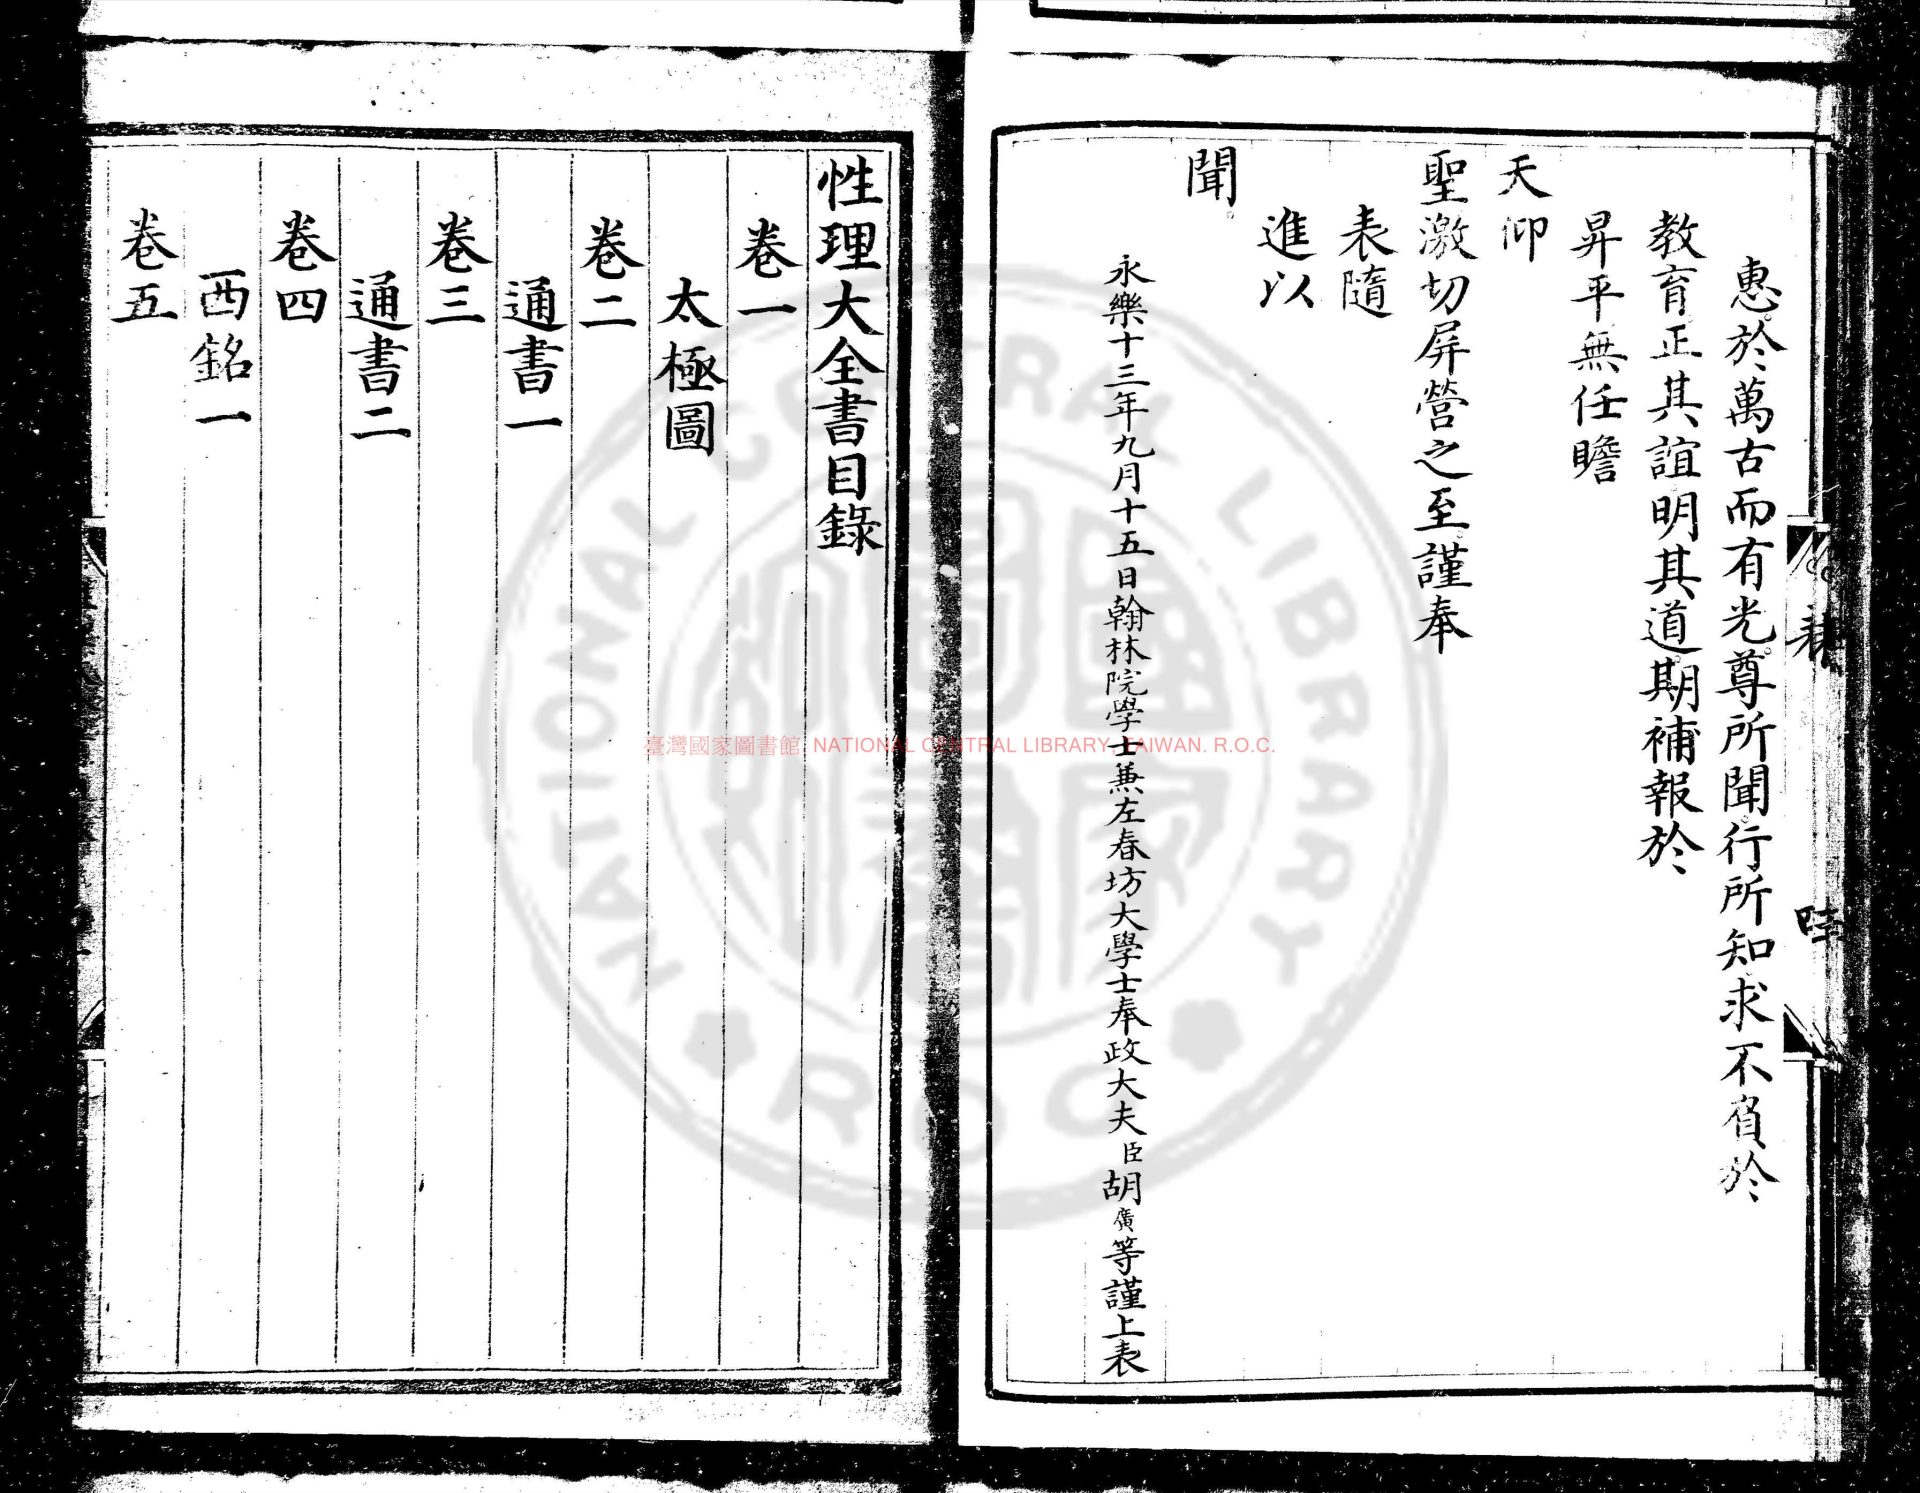 惠於萬古而有光尊所聞行所知求不負於
教育正其誼明其道期補報於
昇平無任瞻
天仰
聖激切屏營之至謹奉
表隨
進以
聞
永樂十三年九月十五日翰林院學士兼左春坊大學士奉政大夫臣胡廣等謹上表
性理大全書目錄
卷一
太極圖
卷二
通書一
卷三
通書二
卷四
西銘一
卷五
臺灣國家圖書館, NATIONAL CENTRAL LIBRARY, TAIWAN. R.O.C.
NATIONAL CENTRAL LIBRARY
ROC